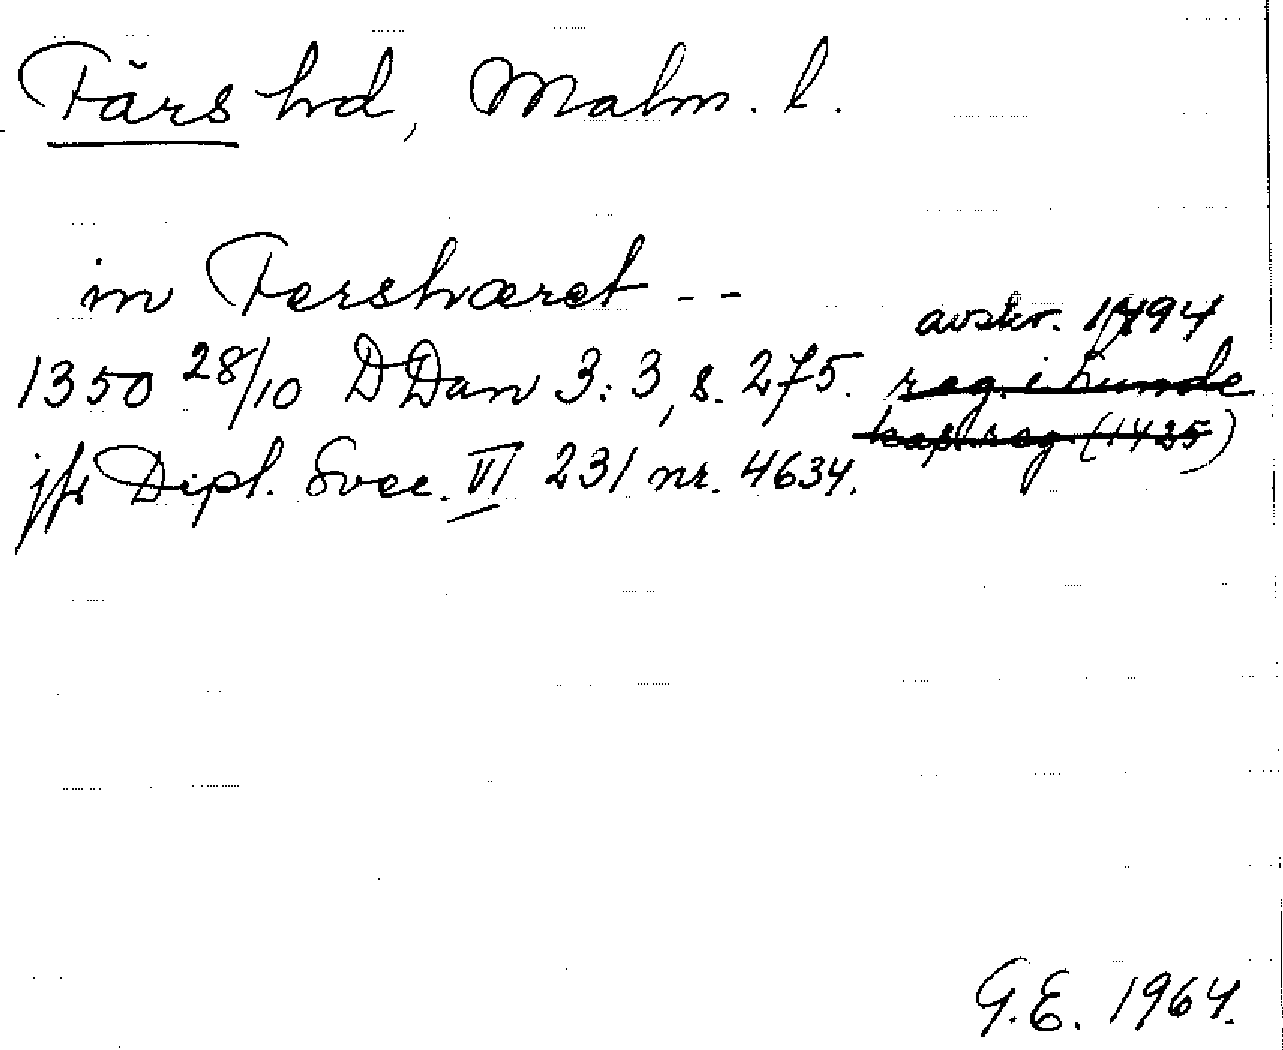 Färs hd, Malm. l.
in Fershæret --
avskr. 1494
1350 28/10 DDan 3:3, s. 275. reg. i Lunde
kap:s reg (1425)
jfr Dipl. Svec. VI 231 nr. 4634.
G.E. 1964.